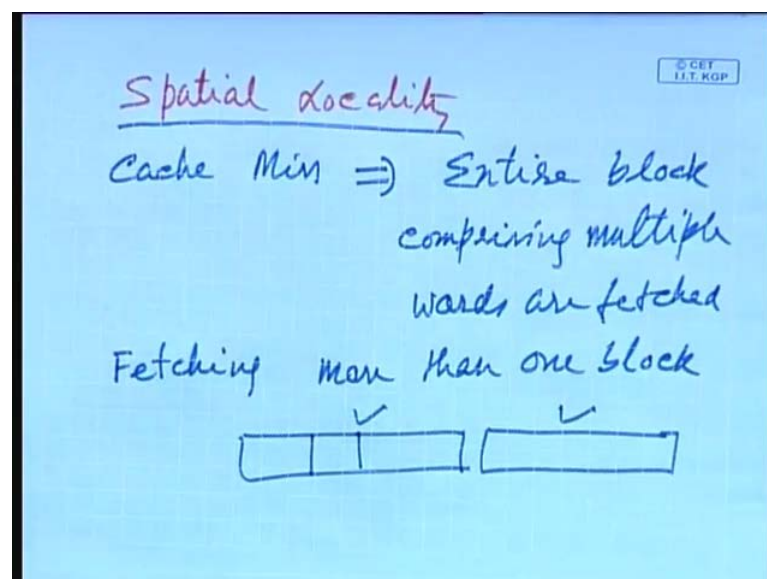 © CET
I.I.T. KGP
Spatial Locality
Cache Miss ⇒ Entire block
comprising multiple
words are fetched
Fetching more than one block